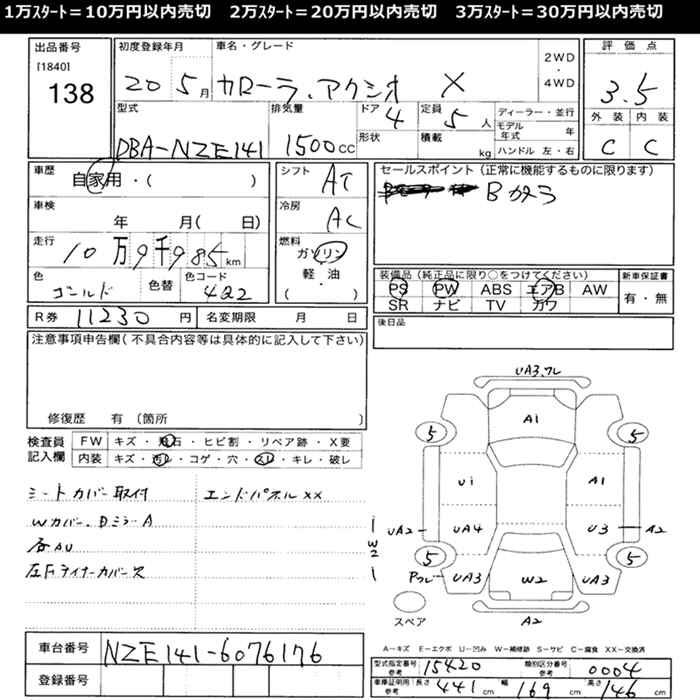 1万ｽﾀｰﾄ＝10万円以内売切　2万ｽﾀｰﾄ＝20万円以内売切　3万ｽﾀｰﾄ＝30万円以内売切
出品番号
[1840]
138
初度登録年月
20 5月
車名・グレード
カローラ.アクシオ X
2WD
・
4WD
評価点
3.5
外装 内装
C C
型式
DBA-NZE141
排気量
1500cc
ドア
4
定員
5人
形状
積載
kg
ディーラー・並行
モデル年式 年
ハンドル 左・右
車歴
自家用・( )
車検
年 月( 日)
走行
10万9千985km
色
ゴールド
色替
色コード
4R2
シフト
AT
冷房
AC
燃料
ガソリン
軽・油
( )
セールスポイント（正常に機能するものに限ります）
Bカメラ
装備品（純正品に限り○をつけてください）
PS PW ABS エアB AW
SR ナビ TV カワ
新車保証書
有・無
R券 11230円
名変期限 月 日
後日品
注意事項申告欄（不具合内容等は具体的に記入して下さい）
修復歴 有〔箇所 〕
検査員
記入欄
FW キズ・飛石・ヒビ割・リペア跡・X要
内装 キズ・汚レ・コゲ・穴・スレ・キレ・破レ
シートカバー取付
エンドパネルXX
Wカバー.DミラーA
各AU
左Fライナーカバー欠
UA3.ワレ
A1
5
5
U1
A1
UA2
UA4
U3
A2
W2
5
5
UA3
W2
UA3
A2
スペア
A－キズ E－エクボ U－凹み W－補修跡 S－サビ C－腐食 XX－交換済
車台番号
NZE141-6076176
登録番号
型式指定番号
参考
15420
類別区分番号
参考
0004
車庫証明用
参考
長さ 441cm 幅 169cm 高さ 146cm